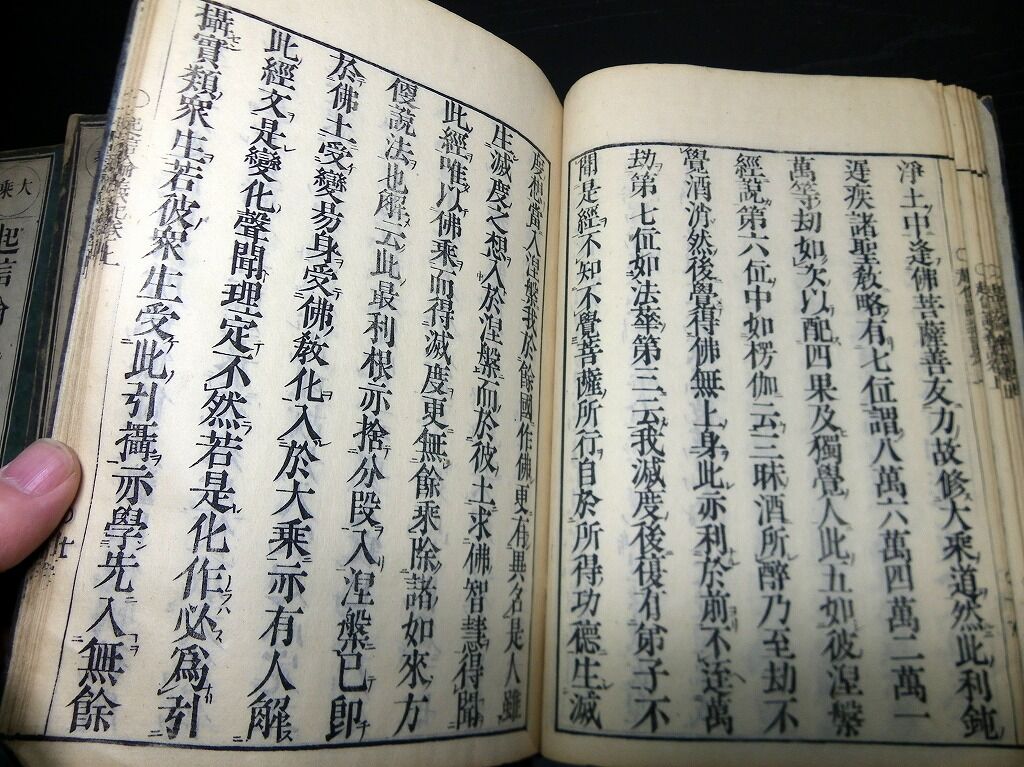 淨土中逢佛菩薩善友力故修大乘道然此利鈍
遲疾諸聖教略有七位謂八萬六萬四萬二萬一
萬等劫如次以配四果及獨覺人此五如彼涅槃
經說第六位中如楞伽云三昧酒所醉乃至劫不
覺酒消然後覺得佛無上身此亦利於前不逕萬
劫第七位如法華第三云我滅度後復有弟子不
聞是經不知不覺菩薩所行自於所得功德生滅
度想當入涅槃我於餘國作佛更有異名是人雖
生滅度之想入於涅槃而於彼土求佛智慧得聞
此經唯以佛乘而得滅度更無餘乘除諸如來方
便說法也解云此最利根亦捨分段入涅槃已即
於佛土受變易身受佛教化入於大乘亦有人解
此經文是變化聲聞理定不然若是化作必爲引
攝實類衆生若彼衆生受此引攝亦學先入無餘
大乘
起信